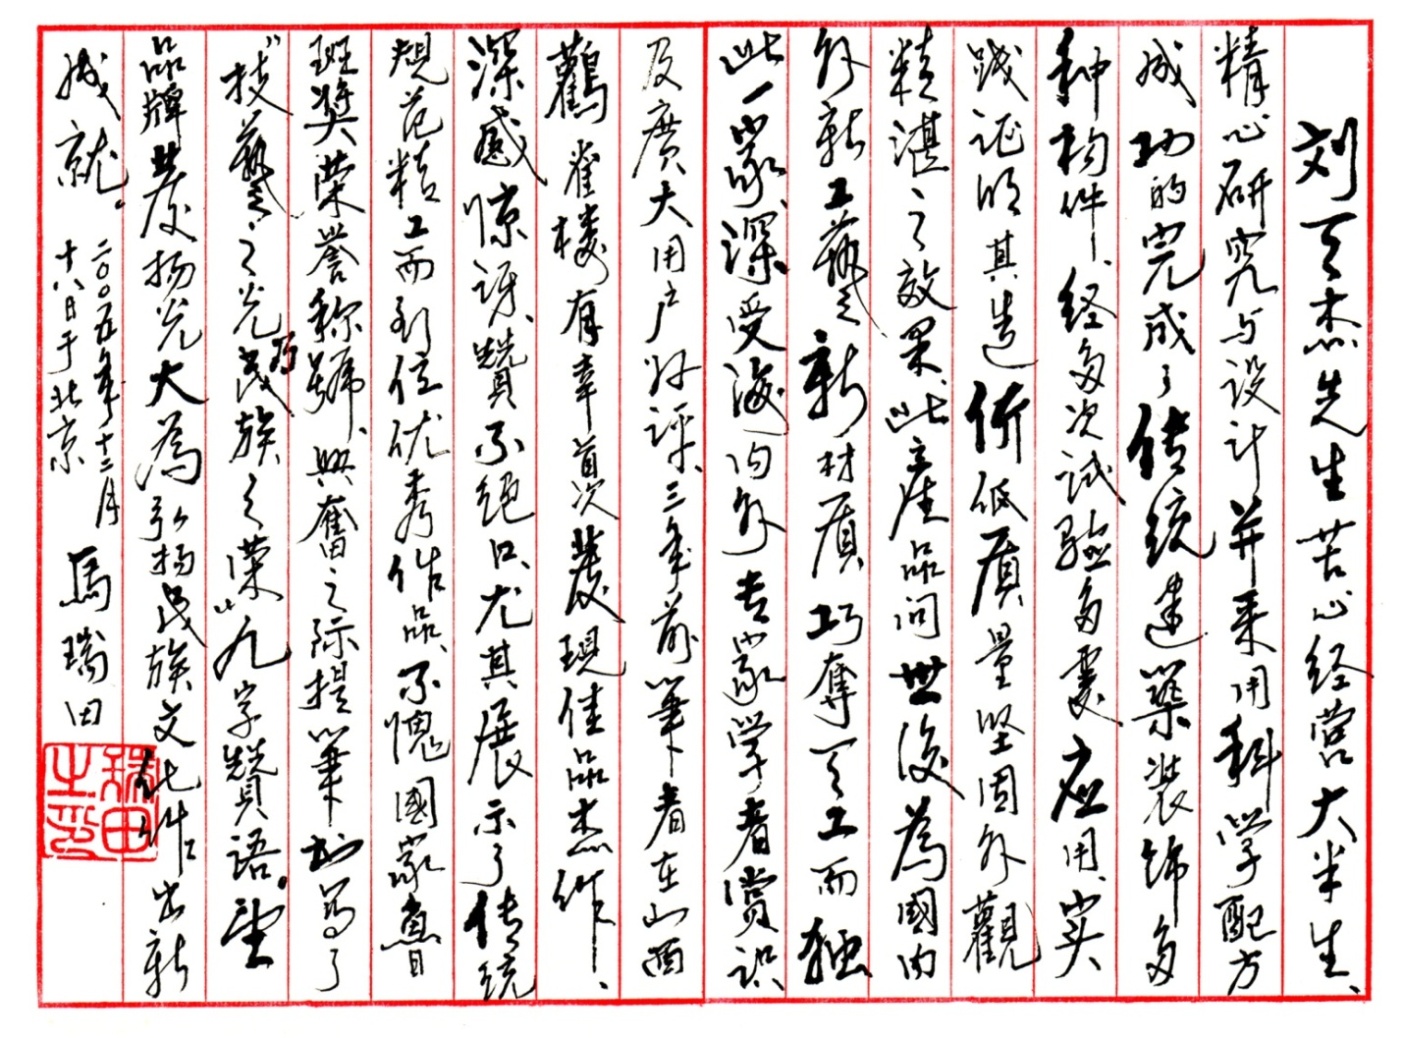 刘天杰先生苦心经营大半生、
精心研究与设计并采用科学配方
成功的完成了传统建築装饰多
种构件、经多次试验多处应用、实
践证明其造价低质量坚固外觀
精湛之效果、此产品问世後為國内
外新工藝新材质巧奪天工而独
此一家、深受海内外专家学者赏识
及廣大用户好评、三年前筆者在山西
鸛雀楼有幸首次發現佳品杰作、
深感惊讶、赞不绝口、尤其展示了传统
规范精工而到位优秀作品、不愧國家鲁
班奖荣誉称號、興奮之际提筆书写了
“技藝之光乃民族之荣”九字赞語。望
品牌發扬光大為弘扬民族文化作出新
成就。
二〇〇五年十二月
十八日于北京
馬瑞田
瑞田之印